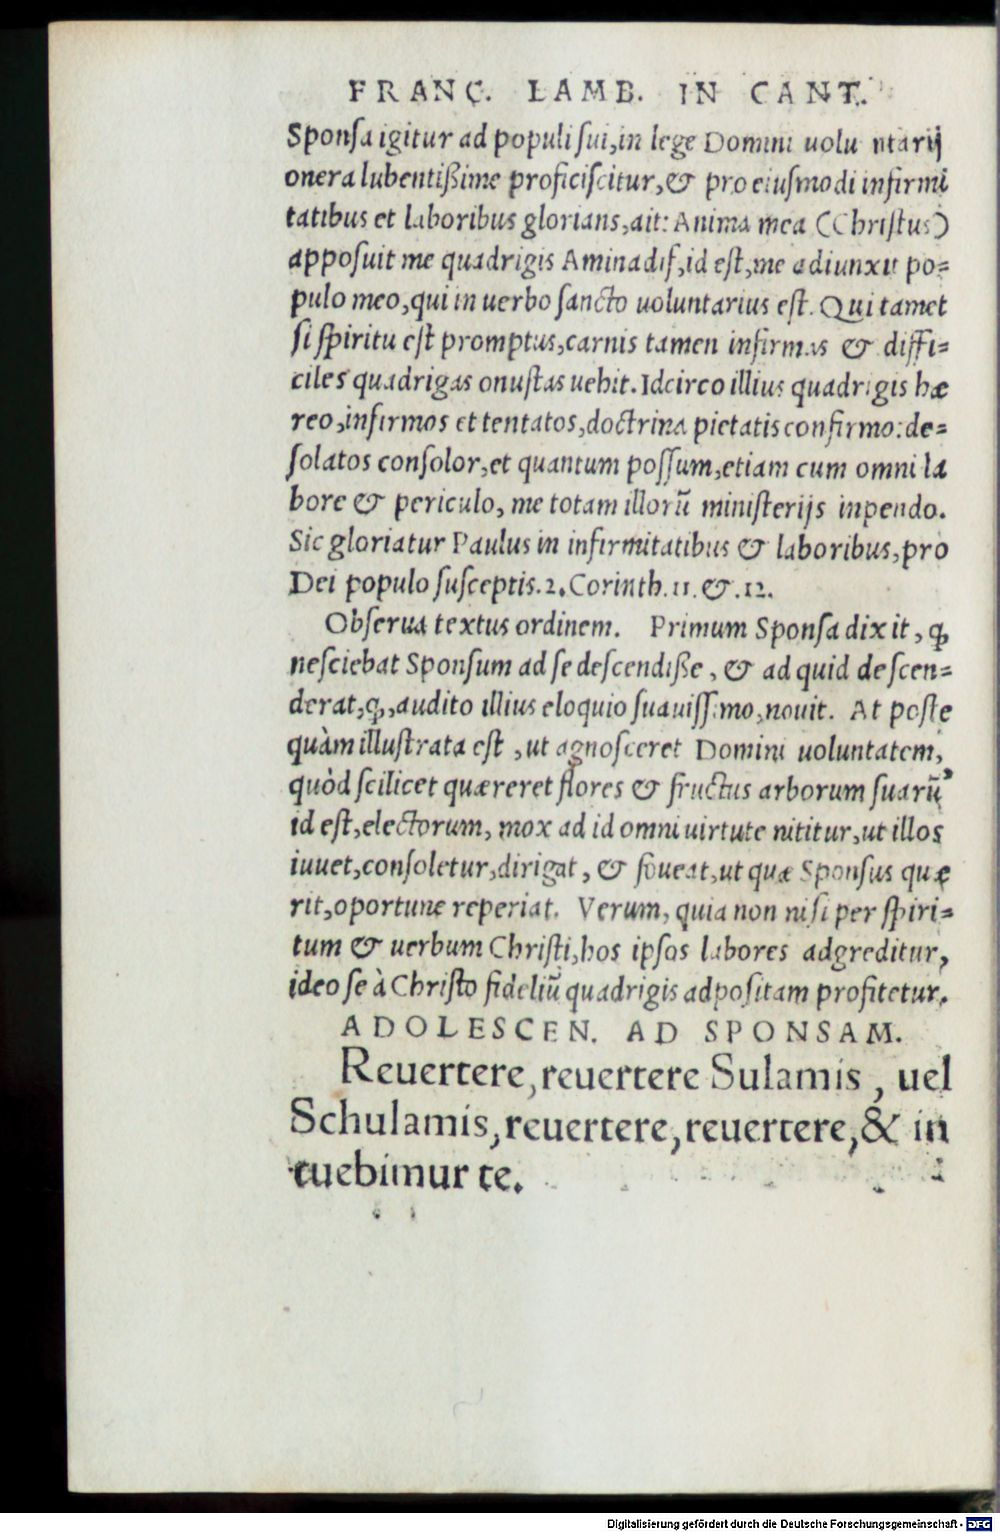 FRANC. LAMB. IN CANT.
Sponſa igitur ad populi ſui, in lege Domini uolu ntarij
onera lubentißime proficiſcitur, & pro eiuſmodi infirmi
tatibus et laboribus glorians, ait: Anima mea (Chriſtus)
appoſuit me quadrigis Aminadif, id eſt, me adiunxit po=
pulo meo, qui in uerbo ſancto uoluntarius eſt. Qui tamet
ſi ſpiritu eſt promptus, carnis tamen infirmas & diffi=
ciles quadrigas onuſtas uehit. Idcirco illius quadrigis hæ
reo, infirmos et tentatos, doctrina pietatis confirmo: de=
ſolatos conſolor, et quantum poſſum, etiam cum omni la
bore & periculo, me totam illorũ miniſterijs inpendo.
Sic gloriatur Paulus in infirmitatibus & laboribus, pro
Dei populo ſuſceptis. 2. Corinth. 11. &. 12.
Obſerua textus ordinem. Primum Sponſa dixit, ꝙ
neſciebat Sponſum ad ſe deſcendiße, & ad quid deſcen=
derat, ꝙ, audito illius eloquio ſuauiſſimo, nouit. At poſte
quàm illuſtrata eſt, ut agnoſceret Domini uoluntatem,
quòd ſcilicet quæreret flores & fructus arborum ſuarũ,
id eſt, electorum, mox ad id omni uirtute nititur, ut illos
iuuet, conſoletur, dirigat, & foueat, ut quæ Sponſus quæ
rit, oportune reperiat. Verum, quia non niſi per ſpiri=
tum & uerbum Chriſti, hos ipſos labores adgreditur,
ideo ſe à Chriſto fideliũ quadrigis adpoſitam profitetur.
ADOLESCEN. AD SPONSAM.
Reuertere, reuertere Sulamis, uel
Schulamis, reuertere, reuertere, & in
tuebimur te.
Digitalisierung gefördert durch die Deutsche Forschungsgemeinschaft - DFG